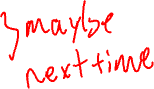 maybe
next time